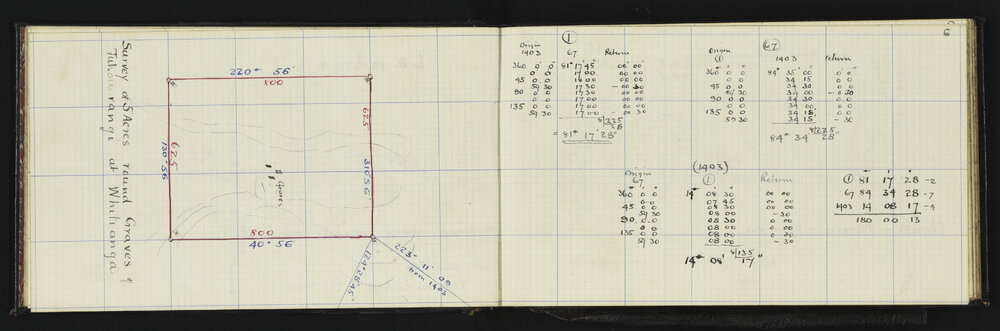 Survey of 5 Acres round Graves of
at Whitianga
220° 56'
800
625
130° 56'
625
310° 56'
Graves
800
40° 56'
223° 11' 09
from 1403
124° 28' 45"
6
①
Origin
1403 67 Return
360 0 0 81° 17' 45" 00 00
0 0 17 00 00 00
45 0 0 18 00 00 00
59 30 17 30
90 0 0 17 30 00 00
0 0 17 00 00 00
135 0 0 17 00 00 00
59 30 17 00 00 30
8/225
28
= 81° 17' 28"
67
Origin
① 1403 return
360° 0 0 84° 35' 00 0 0
0 0 34 15 0 0
45 0 0 34 30 0 0
59 30 34 00 - 0 30
90 0 0 34 30 0 0
0 0 34 00 0 0
135 0 0 34 00 0 0
59 30 34 15 - 30
8/225
84° 34' 28
(1403)
Origin
67 ① Return
360 0 0 14° 08 30 00 00
0 0 07 45 00 00
45 0 0 08 30 00 00
59 30 08 00 - 30
90 0 0 08 00 00 00
0 0 08 00 00
135 0 0 08 00 00
59 30 08 00 - 30
8/135
14° 08' 17"
① 81 17 28 -2
67 84 34 28 -7
1403 14 08 17 -4
180 00 13